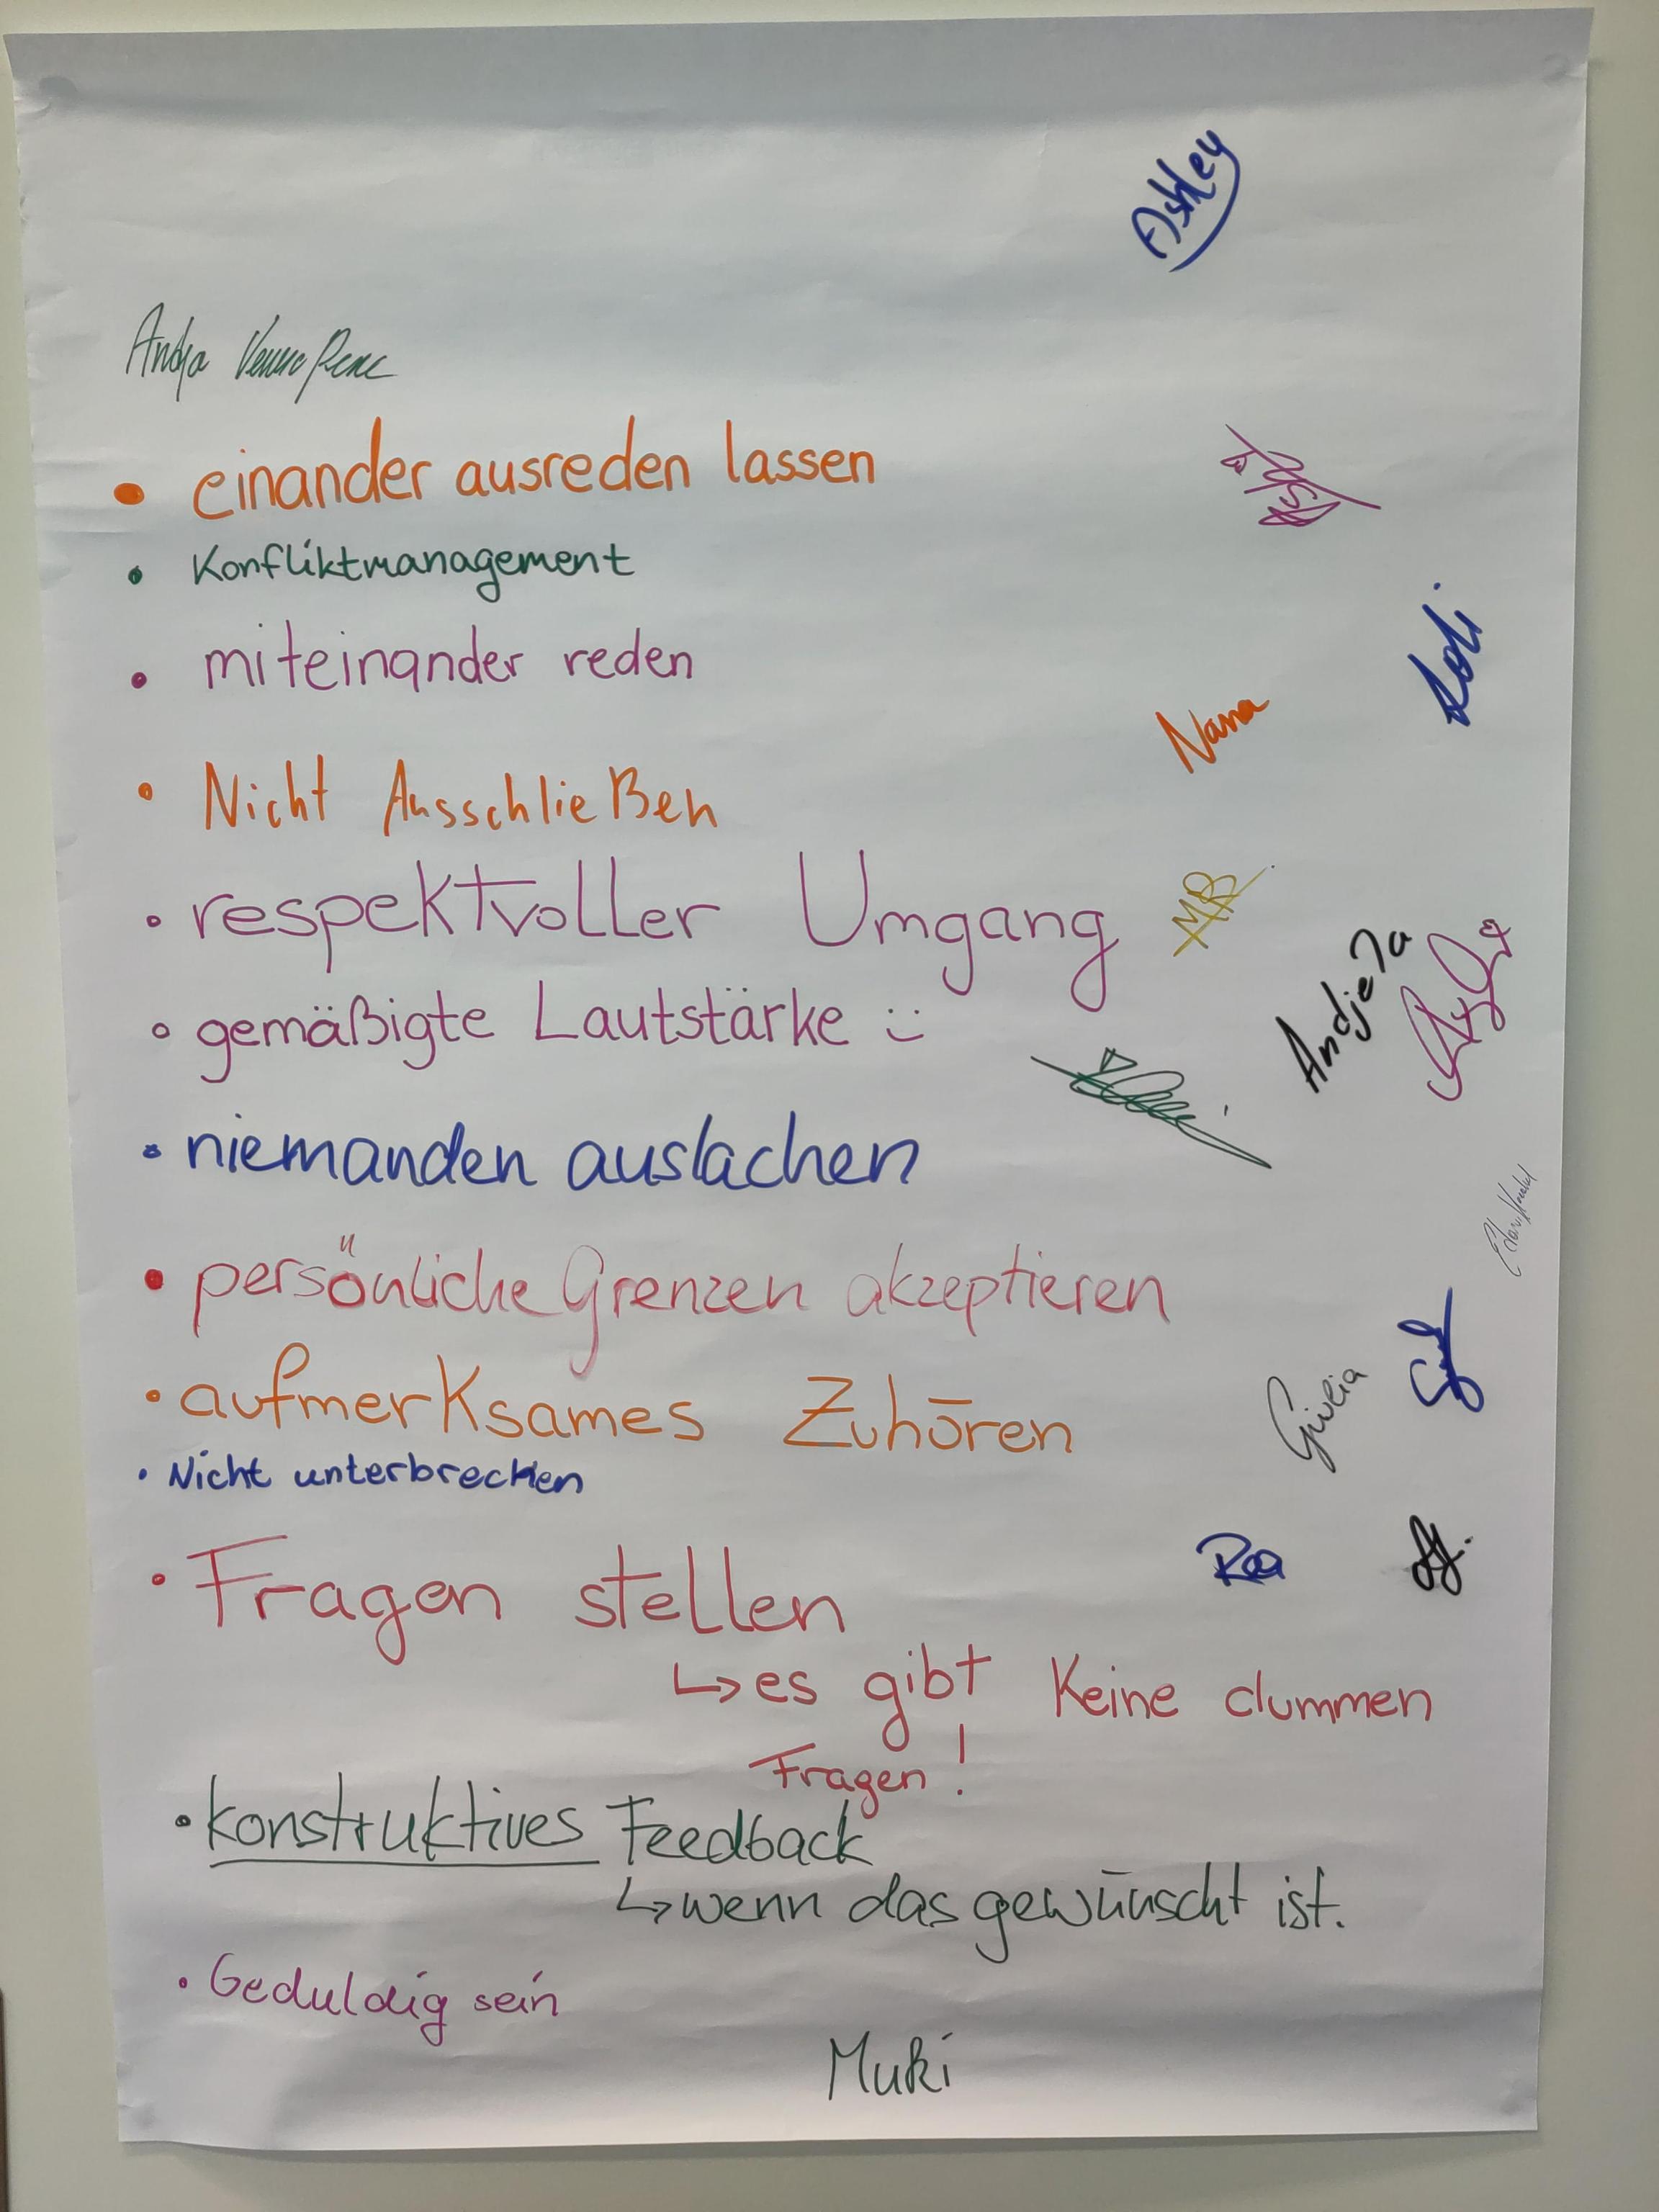 Ashley
• einander ausreden lassen
• Konfliktmanagement
• miteinander reden
Nana
• Nicht Ausschließen
• respektvoller Umgang
• gemäßigte Lautstärke :)
Andjela
• niemanden auslachen
• persönliche Grenzen akzeptieren
• aufmerksames Zuhören
Giulia
• Nicht unterbrechen
• Fragen stellen
Rea
↳ es gibt keine dummen
Fragen!
• konstruktives Feedback
↳ wenn das gewünscht ist.
• Geduldig sein
Muki